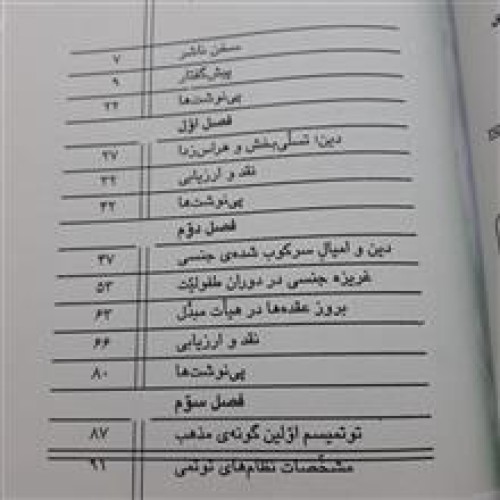 سخن ناشر ۷
پیش‌گفتار ۹
پی‌نوشت‌ها ۲۴
فصل اوّل
دین؛ تسلّی‌بخش و هراس‌زدا ۲۷
نقد و ارزیابی ۳۲
پی‌نوشت‌ها ۴۲
فصل دوّم
دین و امیال سرکوب شده‌ی جنسی ۴۷
غریزه جنسی در دوران طفولیّت ۵۳
بروز عقده‌ها در هیأت مبدّل ۶۳
نقد و ارزیابی ۶۶
پی‌نوشت‌ها ۸۰
فصل سوّم
توتمیسم اوّلین گونه‌ی مذهب ۸۷
مشخّصات نظام‌های توتمی ۹۱